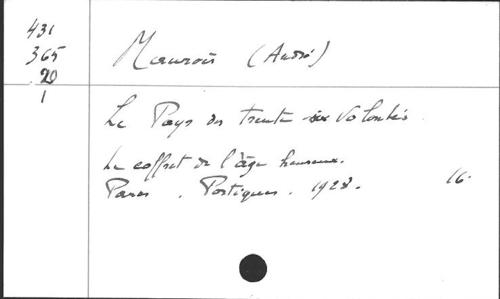 431
365
20
1
Maurois (André)
Le Pays des trente six Volontés.
Le coffret de l'âge heureux.
Paris. Portiques. 1928. 16.